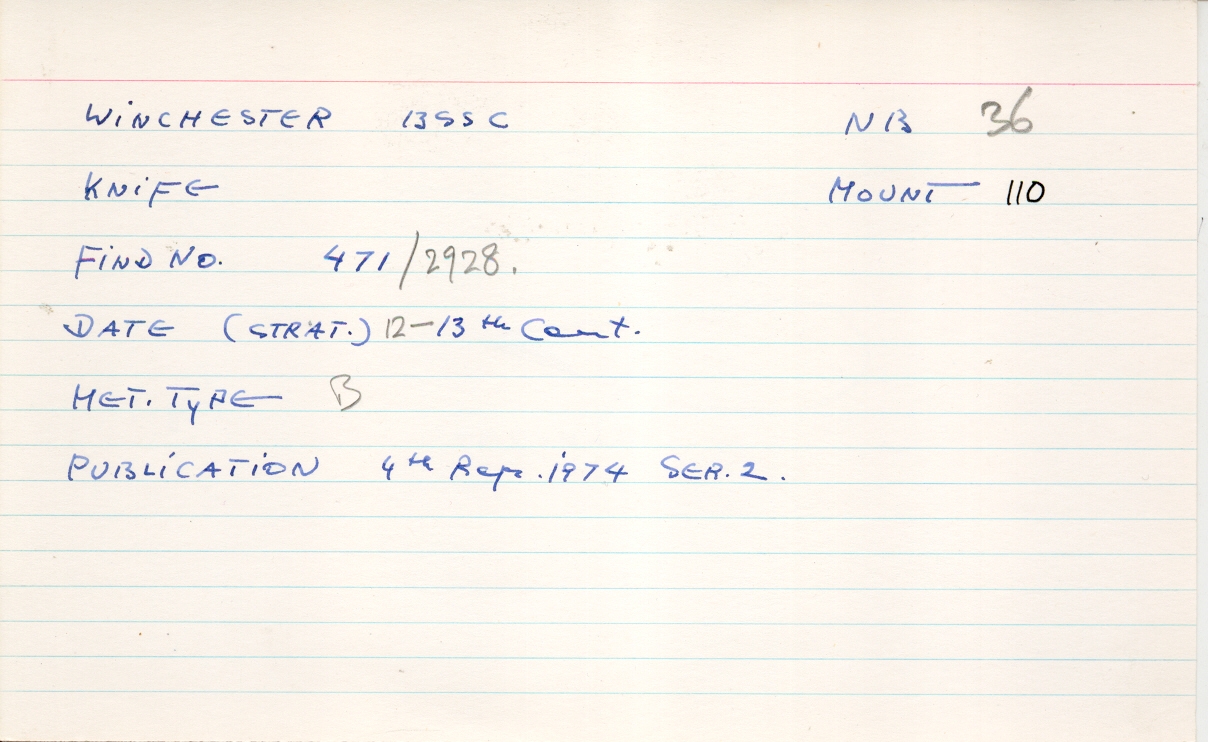 WINCHESTER BSSC NB 36
KNIFE MOUNT 110
FIND NO. 471/2928.
DATE (STRAT.) 12-13th Cent.
MET. TYPE B
PUBLICATION 4th Rep. 1974 SER. 2.